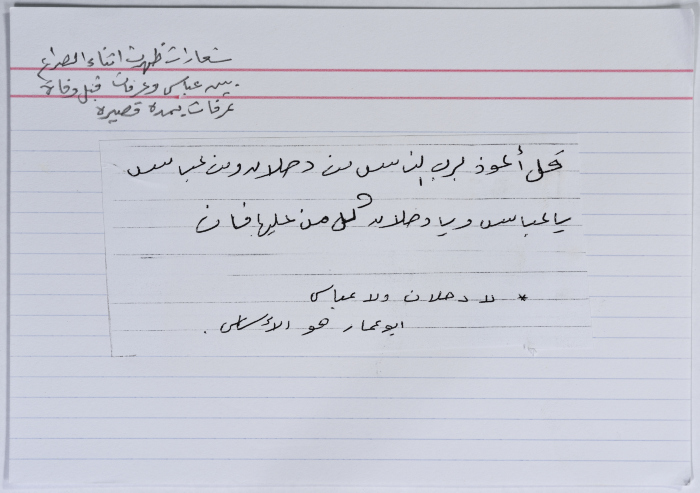 شعارات ظهرت اثناء الصراع
بين عباس وعرفات قبل وفاة
عرفات بمدة قصيرة
قل أعوذ برب الناس من دحلان ومن عباس
يا عباس ويا دحلان كل من عليها فان
* لا دحلان ولا عباس
ابو عمار هو الأساس.